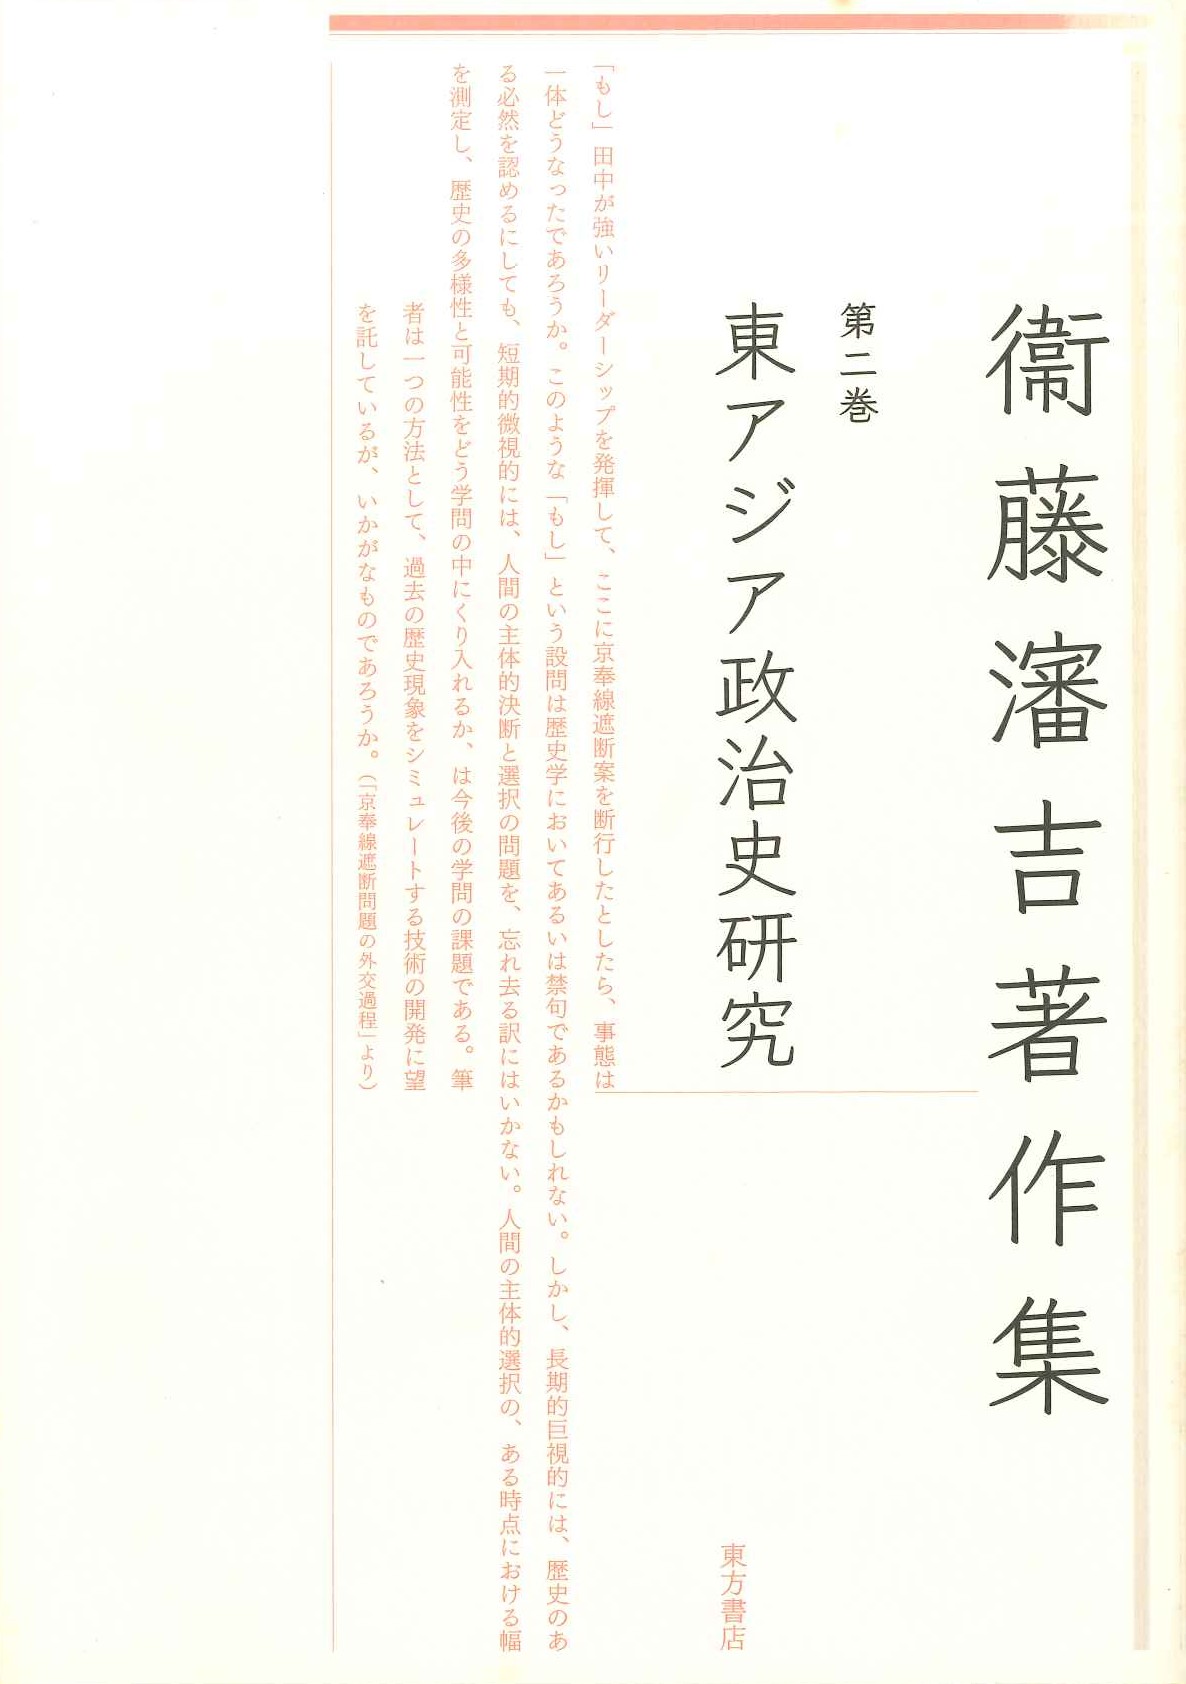 衞藤瀋吉著作集
第二巻
東アジア政治史研究
東方書店
「もし」田中が強いリーダーシップを発揮して、ここに京奉線遮断案を断行したとしたら、事態は
一体どうなったであろうか。このような「もし」という設問は歴史学においてあるいは禁句であるかもしれない。しかし、長期的巨視的には、歴史のあ
る必然を認めるにしても、短期的微視的には、人間の主体的決断と選択の問題を、忘れ去る訳にはいかない。人間の主体的選択の、ある時点における幅
を測定し、歴史の多様性と可能性をどう学問の中にくり入れるか、は今後の学問の課題である。筆
者は一つの方法として、過去の歴史現象をシミュレートする技術の開発に望
を託しているが、いかがなものであろうか。（「京奉線遮断問題の外交過程」より）